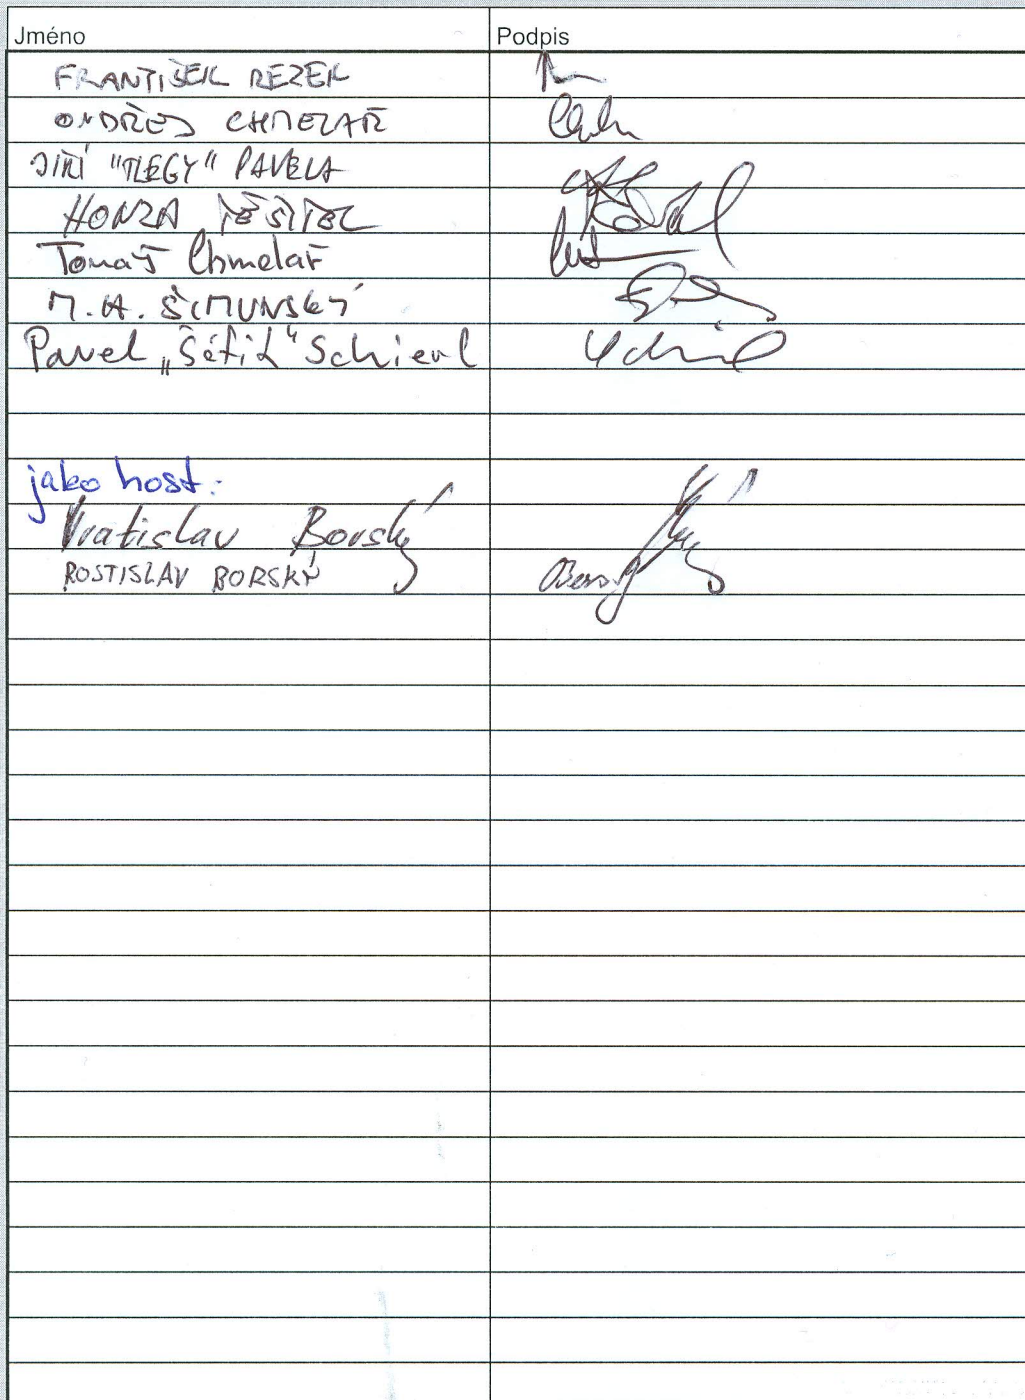 Jméno Podpis
FRANTIŠEK REZEK
ONDŘEJ CHMELAŘ
JIŘÍ "MEGY" PAVELA
HONZA TĚŠITEL
Tomáš Chmelař
M.A. ŠIMUNSKÝ
Pavel „Šéfik“ Schierl
jako host:
Vratislav Borský
ROSTISLAV BORSKÝ